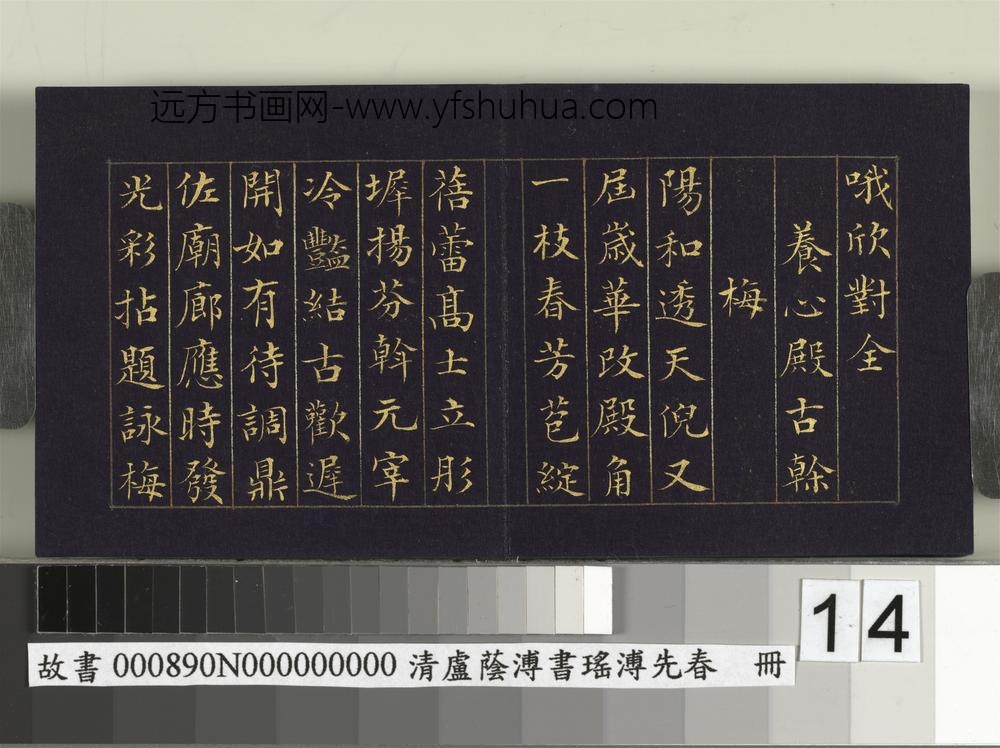 远方书画网-www.yfshuhua.com
哦欣對全
養心殿古榦
梅
陽和透天倪又
屆歲華改殿角
一枝春芳苞綻
蓓蕾高士立彤
墀揚芬斡元宰
冷豔結古歡遲
開如有待調鼎
佐廟廊應時發
光彩拈題詠梅
14
故書 000890N000000000 清盧蔭溥書瑤溥先春 冊